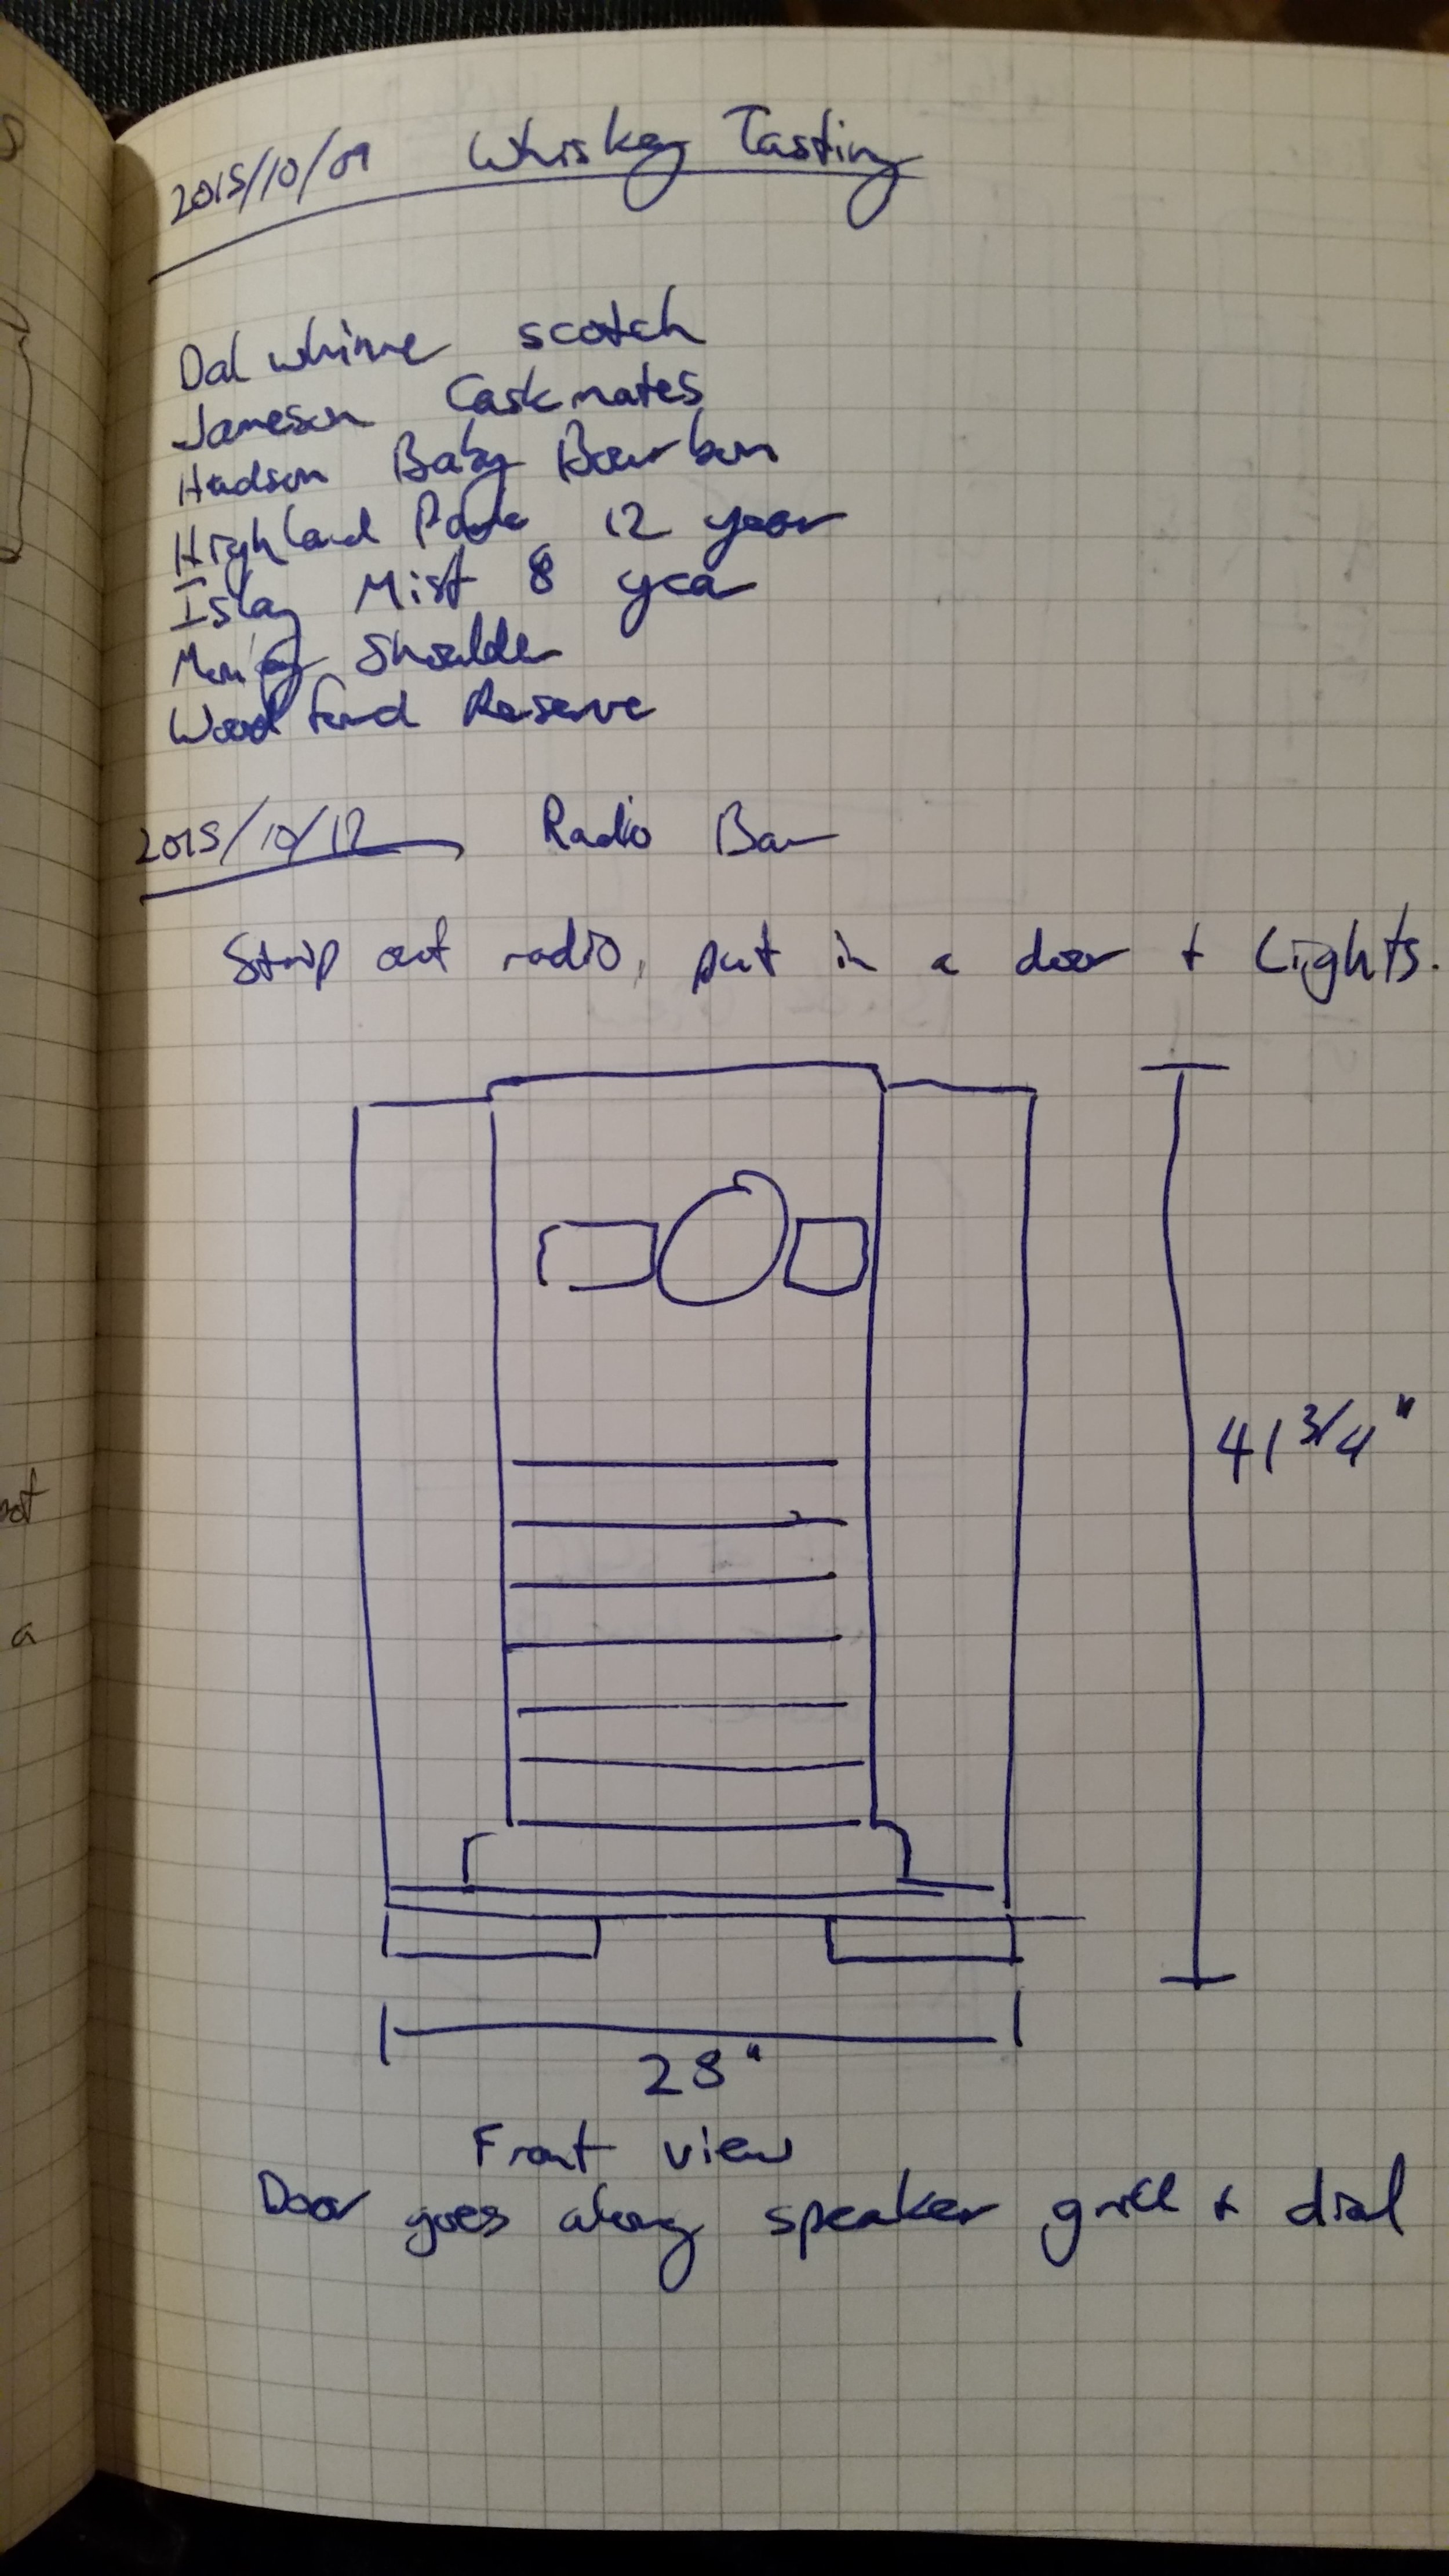 2015/10/09 Whiskey Tasting
Dalwhinne scotch
Jameson Caskmates
Hudson Baby Bourbon
Highland Park 12 year
Islay Mist 8 year
Monkey Shoulder
Woodford Reserve
2015/10/12 Radio Bar
Strip out radio, put in a door + Lights.
41 3/4"
28"
Front view
Door goes along speaker grill + dial
a